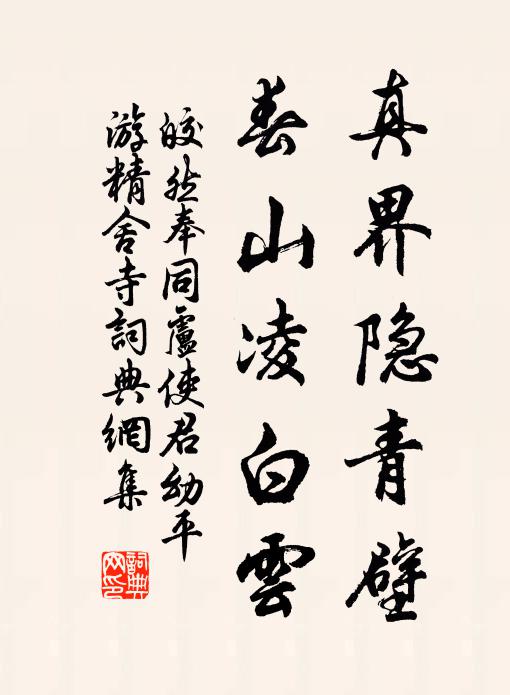 真界隐青壁
春山凌白雲
皎然奉同盧使君幼平
游精舍寺詞典網集
詞典網印